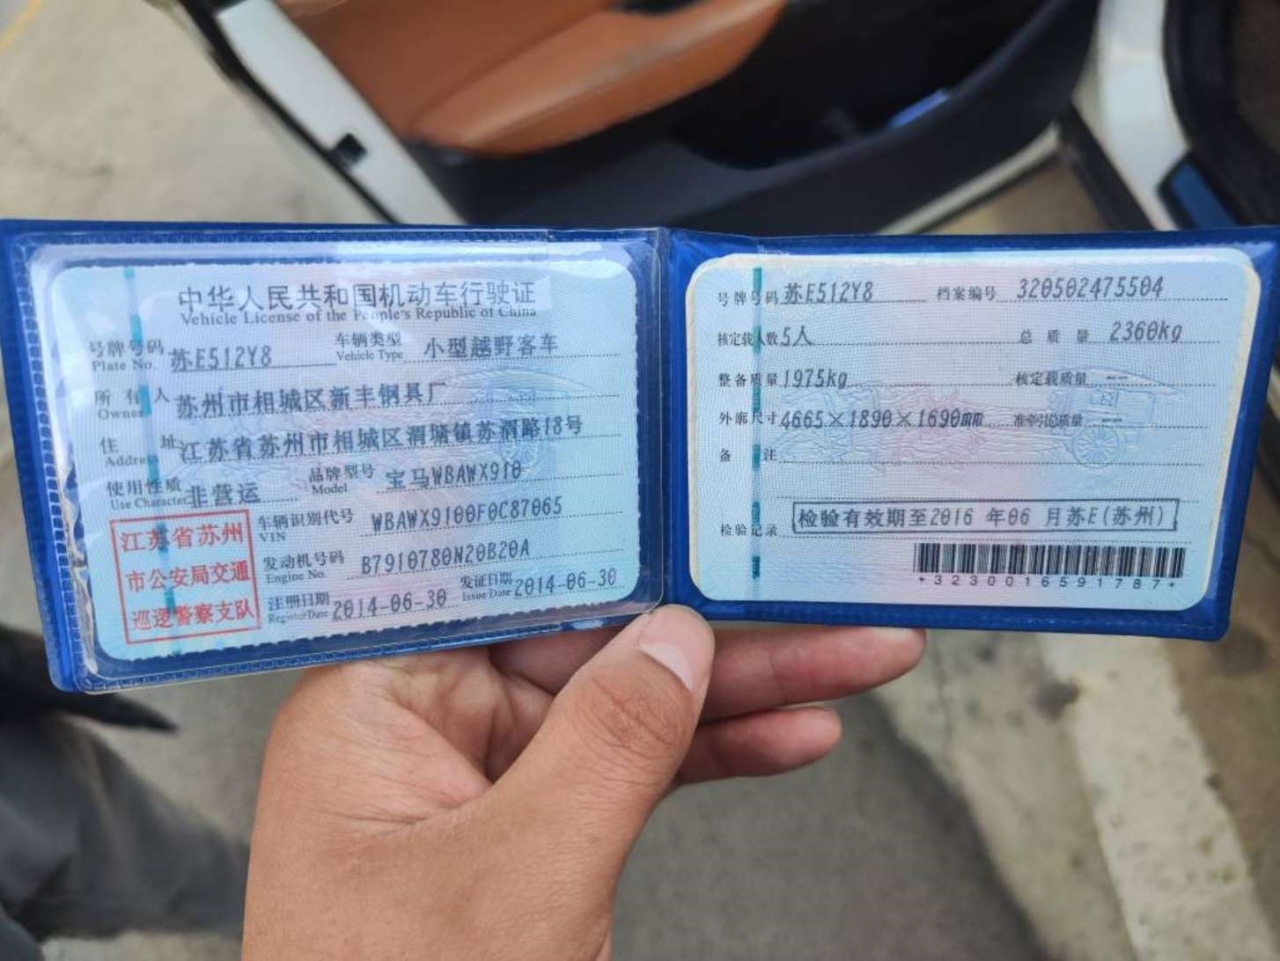 中华人民共和国机动车行驶证
Vehicle License of the People's Republic of China
号牌号码 苏E512Y8 车辆类型 小型越野客车
Plate No. Vehicle Type
所有人 苏州市相城区新丰钢具厂
Owner
住址 江苏省苏州市相城区渭塘镇苏渭路18号
Address
使用性质 非营运 品牌型号 宝马WBAWX910
Use Character Model
江苏省苏州
市公安局交通
巡逻警察支队
车辆识别代号 WBAWX9100F0C87065
VIN
发动机号码 B7910780N20B20A
Engine No.
注册日期 2014-06-30 发证日期 2014-06-30
Register Date Issue Date
号牌号码 苏E512Y8 档案编号 320502475504
核定载人数 5人 总质量 2360kg
整备质量 1975kg 核定载质量 --
外廓尺寸 4665×1890×1690mm 准牵引总质量 --
备注
检验记录 检验有效期至2016 年06 月苏E(苏州)
*3230016591787*